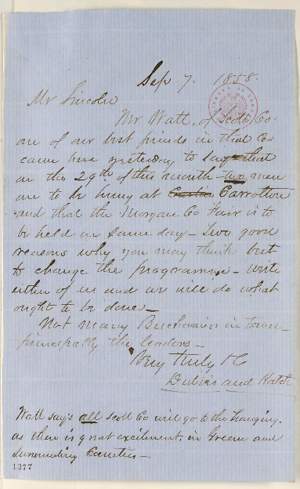 Sep 7. 1858.
Mr Lincoln
Mr Watt, of Scott Co
one of our best friends in that Co
came here yesterday to say that
on the 29th of this month two men
are to be hung at Carrolton
and that the Morgan Co Fair is to
be held on same day - Two good
reasons why you may think best
to change the programme - Write
either of us and we will do what
ought to be done -
Not many Buchaniers in town -
principally the leaders -
Very truly &C
Dubois and Hatch
Watt says all Scott Co will go to the hanging,
as there is great excitement in Greene and
surrounding Counties -
1377